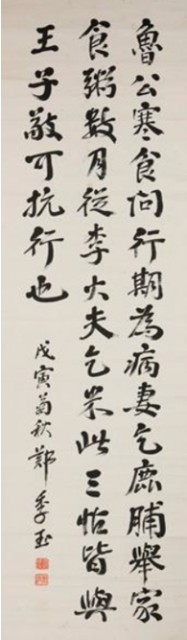 魯公寒食問行期為病妻乞鹿脯舉家
食粥數月從李大夫乞米此三帖皆與
王子敬可抗行也
戊寅菊秋鄭季玉